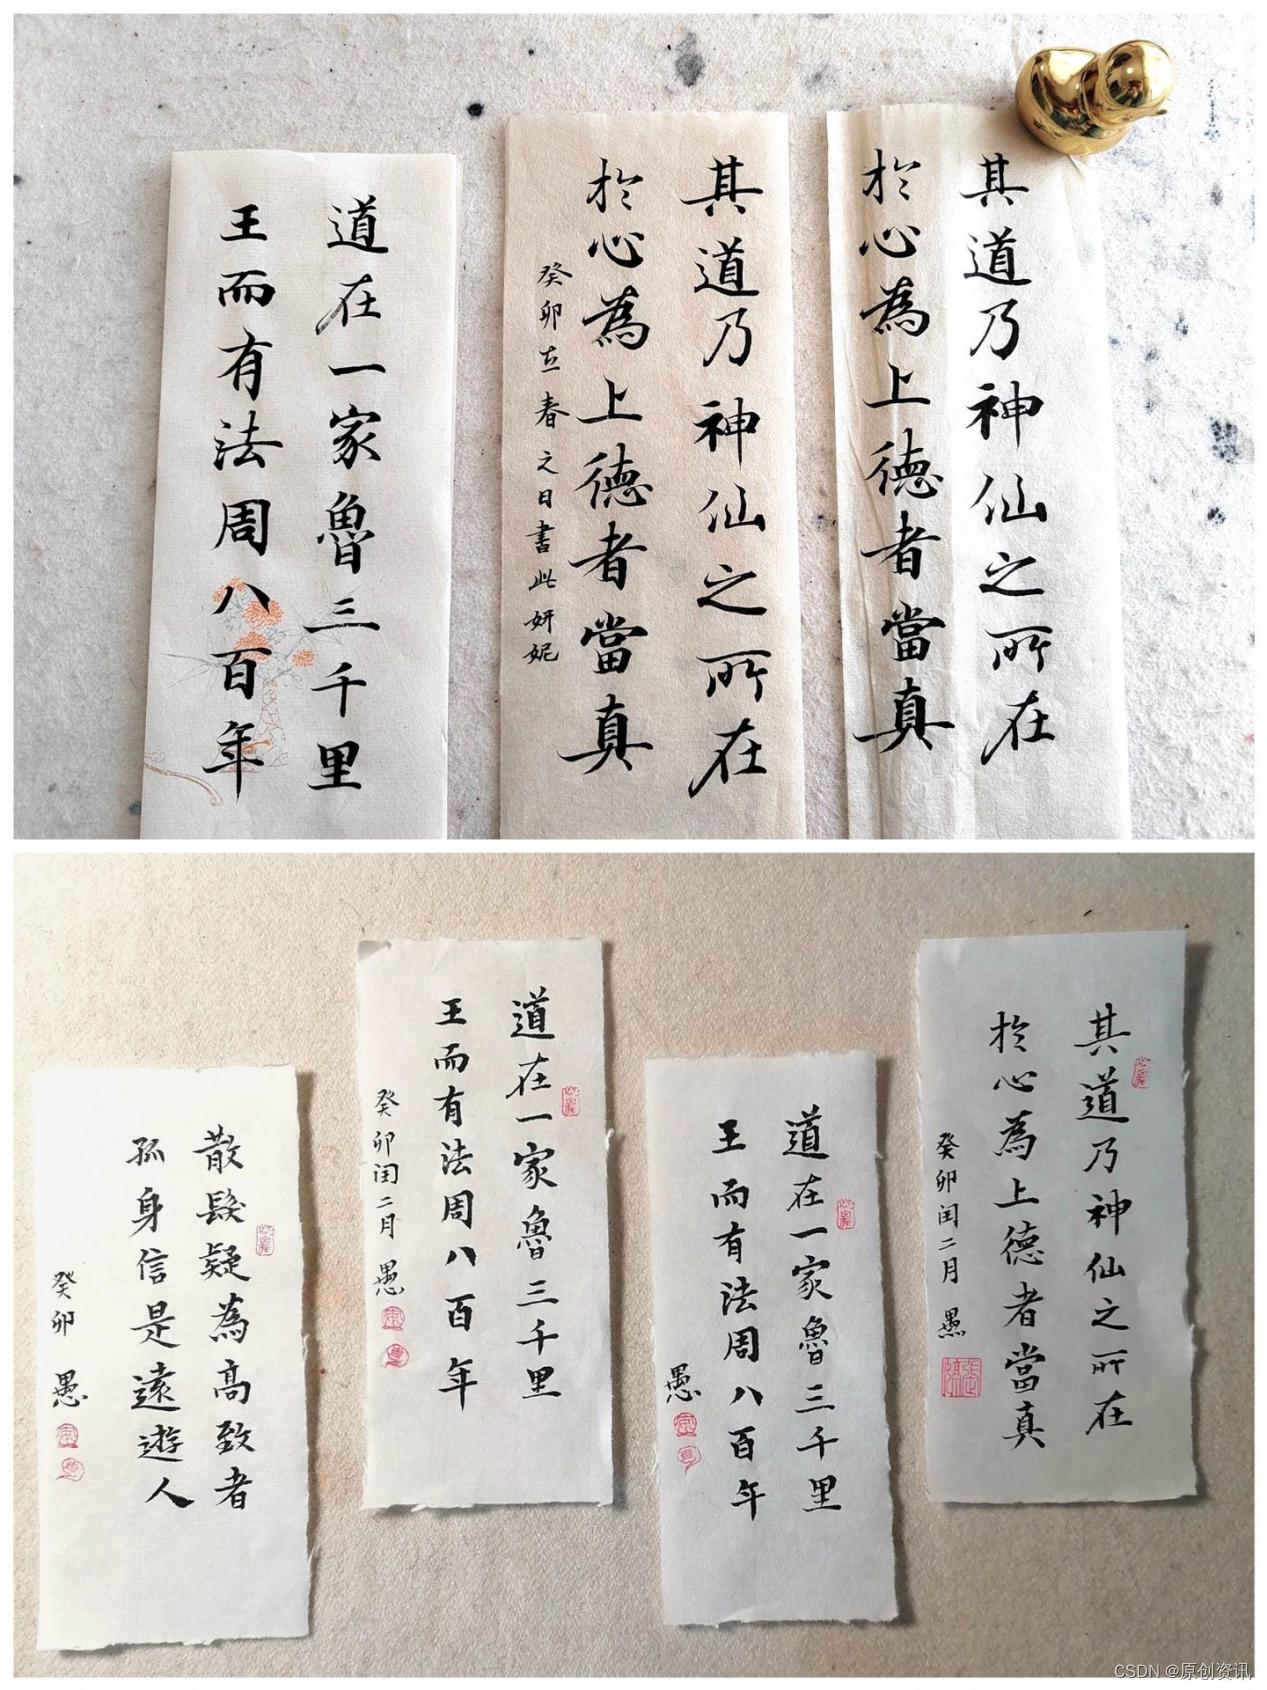 其道乃神仙之所在
於心為上德者當真
其道乃神仙之所在
於心為上德者當真
癸卯立春之日書此妍妮
道在一家魯三千里
王而有法周八百年
其道乃神仙之所在
於心為上德者當真
癸卯闰二月 愚
道在一家魯三千里
王而有法周八百年
愚
道在一家魯三千里
王而有法周八百年
癸卯闰二月 愚
散髮疑為高致者
孤身信是遠遊人
癸卯 愚
CSDN @原创资讯